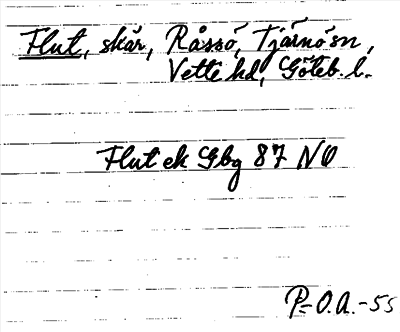 Flut, skär, Råssö, Tjärnö sn,
Vette hd, Göteb. l.
Flut ek Gbg 87 NO
P-O.A.-55